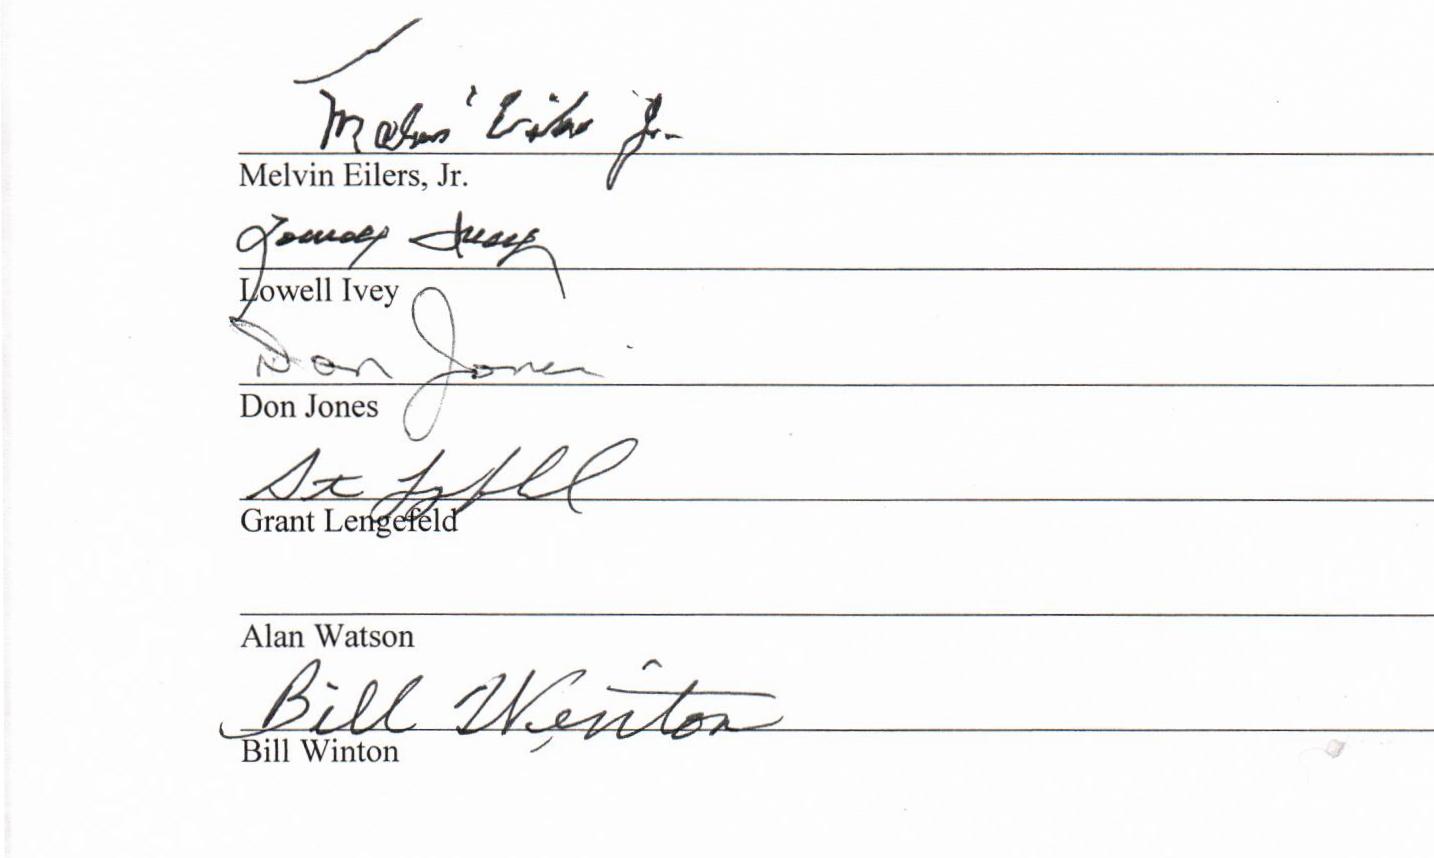 Melvin Eilers Jr.
Melvin Eilers, Jr.
Lowell Ivey
Lowell Ivey
Don Jones
Don Jones
Grant Lengefeld
Alan Watson
Bill Winton
Bill Winton